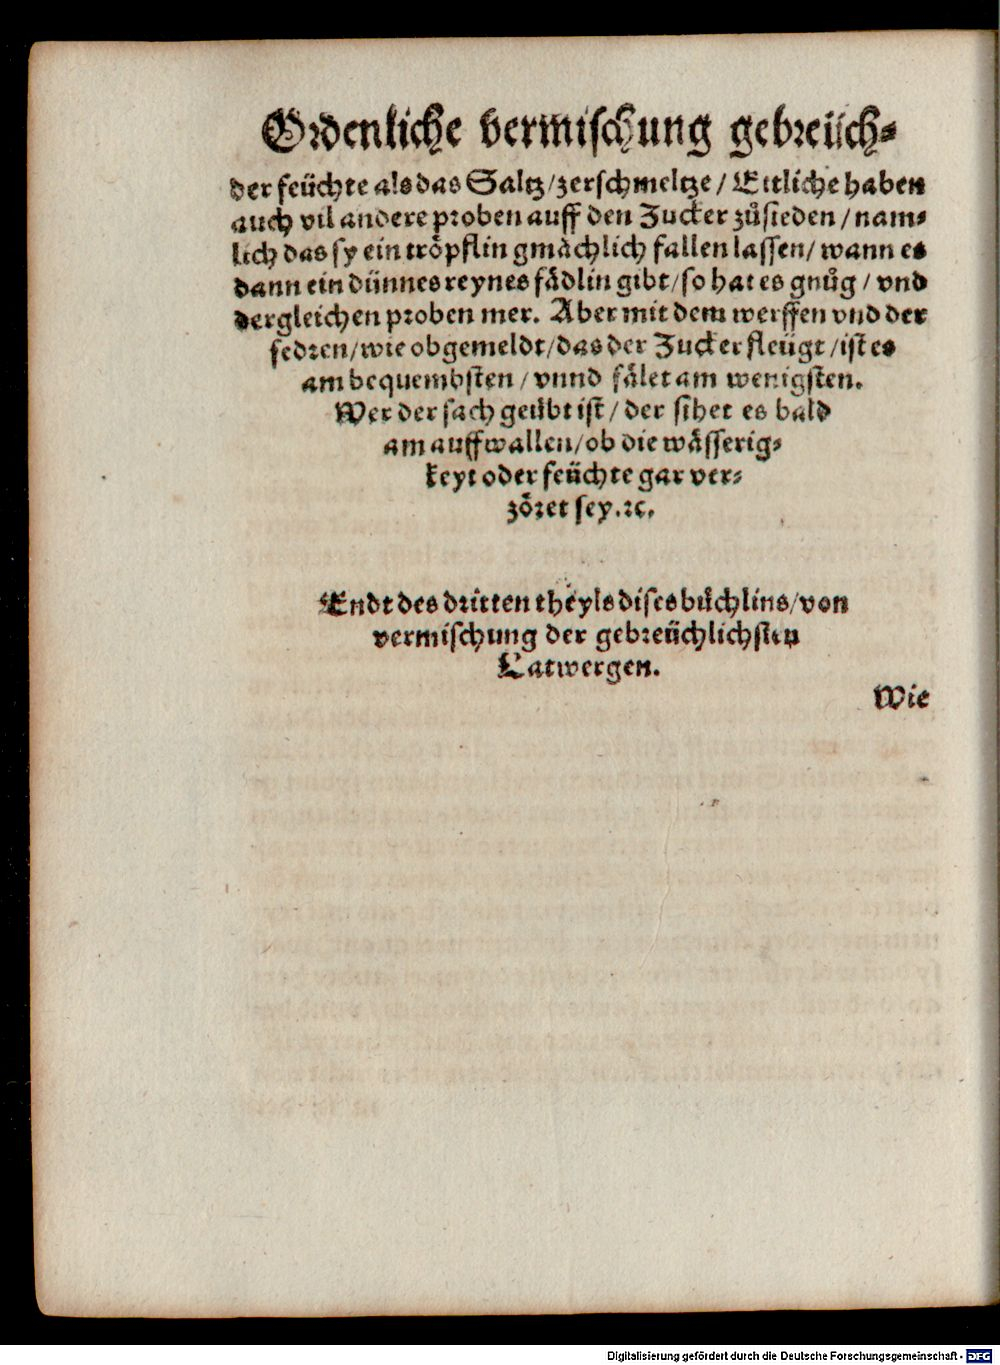 Ordenliche vermischung gebreüch⸗
der feüchte als das Saltz/zerschmeltze/ Ettliche haben
auch vil andere proben auff den Zucker zůsieden/nam⸗
lich das sy ein troͤpflin gmaͤchlich fallen lassen/ wann es
dann ein dünnes reynes faͤdlin gibt/so hat es gnůg/ vnd
dergleichen proben mer. Aber mit dem werffen vnd der
fedren/wie obgemeldt/das der Zucker fleügt/ist es
am bequembsten/vnnd faͤlet am wenigsten.
Wer der sach geübt ist/der sihet es bald
am auffwallen/ob die waͤsserig⸗
keyt oder feüchte gar ver⸗
zoͤret sey.ꝛc.
Endt des dritten theyls dises bůchlins/von
vermischung der gebreüchlichsten
Latwergen.
Wie
Digitalisierung gefördert durch die Deutsche Forschungsgemeinschaft - DFG